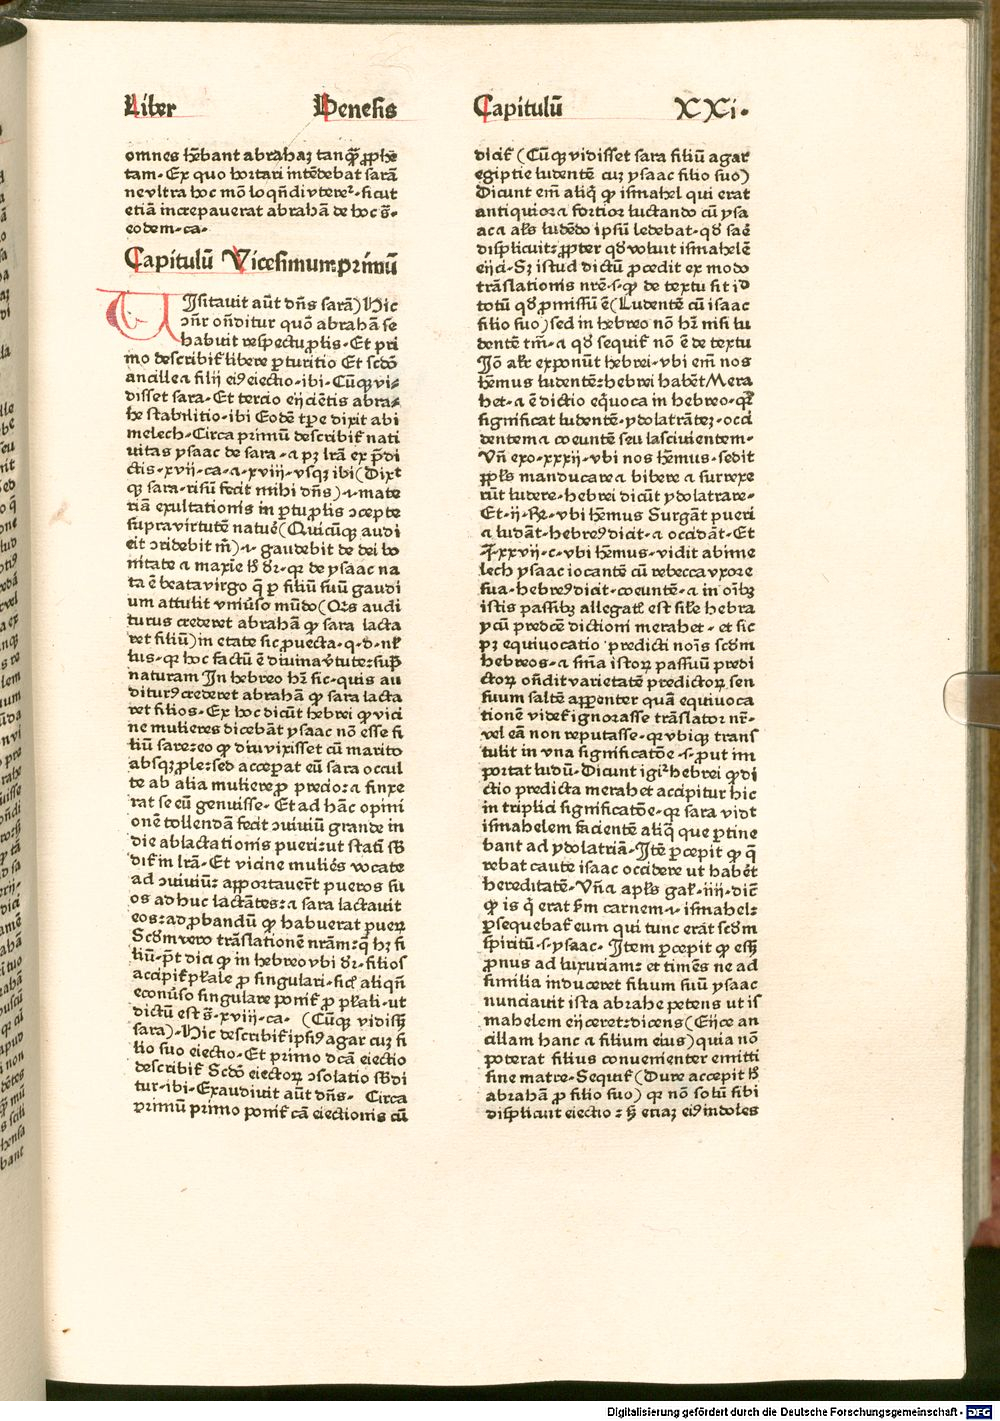 Liber Genesis Capitulū XXi.
omnes hēbant abrahaz tanq̄ꝫ ꝓphe
tam. Ex quo hortari intēdebat sarā
ne vltra hoc mō loqūdi vteret. sicut
etiā increpauerat abrahā de hoc s̄.
eodem. ca.
Capitulū Vicesimumprimū
Uisitauit aūt dn̄s sarā) Hic
ↄn̄r on̄ditur quō abrahā se
habuit respectu ꝓlis. Et pri
mo describit̄ libere ꝑturitio Et scd̄o
ancille a filij eiꝰ eiectio. ibi. Cūqꝫ vi⸗
disset sara. Et tercio eijciētis abra⸗
he stabilitio. ibi Eodē tꝑe dixit abi
melech. Circa primū describit̄ nati
uitas ysaac de sara. a pꝫ lr̄a ex p̄di
ctis. xvij. ca. a. xviij. vsqꝫ ibi (Dixt
qꝫ sara. risū fecit mihi dn̄s) .i. mate
riā exultationis in ꝑtu ꝓlis ↄcepte
supra virtutē nature (Quicūqꝫ audi
eit ↄridebit m̄) .i. gaudebit de dei bo
nitate a maxīe h̄ dr̄. qꝛ de ysaac na
ta ē beata virgo q̄ ꝑ filiū suū gaudi
um attulit vniūso mūdo (Qs̄ audi
turus crederet abrahā ꝙ sara lacta
ret filiū) in etate sic ꝓuecta. q. d. nul̄
lus. qꝛ hoc factū ē diuina v̄tute: sup̄
naturam In hebreo hꝫ sic. quis au
diturꝰ crederet abrahā ꝙ sara lacta
ret filios. Ex hoc dicūt hebrei ꝙ vici
ne mulieres dicebāt ysaac nō esse fi
liū sare: eo ꝙ diu vixisset cū marito
absqꝫ ꝓle: sed acceꝑat eū sara occul
te ab alia muliere ꝓ precio: a finxe
rat se eū genuisse. Et ad hāc opini
onē tollendā fecit ↄuiuiū grande in
die ablactationis pueri: ut statī sb̄
dit̄ in lr̄a. Et vicine muliēs vocate
ad ↄuiuiū: apportauer̄t pueros su
os adhuc lactātes: a sara lactauit
eos: ad ꝓbandū ꝙ habuerat puerꝫ
Scd̄m vero trāslationē nr̄am: q̄ hꝫ fi
liū. p̄t dici ꝙ in hebreo vbi dr̄. filios
accipit̄ pl̄ale ꝓ singulari. sic̄ aliqn̄
econūso singulare ponit̄ ꝓ pl̄ali. ut
dictū est s̄. xviij. ca. (Cūqꝫ vidissꝫ
sara). Hic describit̄ ipsiꝰ agar cuꝫ fi
lio suo eiectio. Et primo dc̄ā eiectio
describit̄ Scd̄o eiectorꝫ ↄsolatio sb̄di
tur. ibi. Exaudiuit aūt dn̄s. Circa
primū primo ponit̄ cā eiectionis cū
dicit̄ (Cūqꝫ vidisset sara filiū agar
egiptie ludentē cuꝫ ysaac filio suo)
Dicunt em̄ aliq̄ ꝙ ismahel qui erat
antiquior a fortior luctando cū ysa
ac a al̄s ludēdo ipsū ledebat. qd̄ sarē
displicuit: ꝓpter qd̄ voluit ismahelē
eijci. Sꝫ istud dictū ꝓcedit ex modo
trāslationis nr̄e. s. ꝙ de textu sit id
totū qd̄ ꝓmissū ē (Ludentē cū isaac
filio suo) sed in hebreo nō hꝫ nisi lu
dentē tm̄. a qd̄ sequit̄ nō ē de textu
Iō alr̄ exponūt hebrei. vbi em̄ nos
hēmus ludentē: hebrei habēt Mera
het. a ē dictio eq̄uoca in hebreo. qꝛ
significat ludentē. ydolatrātē: occi
dentem a coeuntē seu lasciuientem.
Vn̄ exo. xxxij. vbi nos hēmus. sedit
ppl̄s manducare a bibere a surrexe
rūt ludere. hebrei dicūt ydolatrare.
Et. ij. Re. vbi hēmus Surgāt pueri
a ludāt. hebreꝰ dicit. a occidāt. Et
j. xxvij. c. vbi hēmus. vidit abime
lech ysaac iocantē cū rebecca vxore
sua. hebreꝰ dicit. coeuntē. a in oībꝫ
istis passibꝫ allegatꝭ est sil̄e hebra
ycū predc̄e dictioni merahet. et sic
pꝫ equiuocatio predicti nois scd̄m
hebreos. a sn̄ia istorꝫ passuū predi
ctorꝫ on̄dit varietatē predictorꝫ sen
suum saltē apparenter quā equiuoca
tionē videt̄ ignorasse trāslator nr̄.
vel eā non reputasse. qꝛ vbiqꝫ trans
tulit in vna significatōe. s. ꝓut im
portat ludū. Dicunt igit̄ hebrei ꝙ di
ctio predicta merahet accipitur hic
in triplici significatōe. qꝛ sara vidt
ismahelem facientē aliq̄ que ꝑtine
bant ad ydolatriā. Itē ꝑcepit ꝙ q̄
rebat caute isaac occidere ut habēt
hereditatē. Vn̄ a apl̄s gal̄. iiij. dic̄
ꝙ is q̄ erat s̄m carnem .i. ismahel:
ꝑsequebat̄ eum qui tunc erāt scd̄m
spiritū. s. ysaac. Item ꝑcepit ꝙ essꝫ
ꝓnus ad luxuriam: et timēs ne ad
similia induceret filium suū ysaac
nunciauit ista abrahe petens ut is
mahelem eijceret: dicens (Eijce an
cillam hanc a filium eius) quia nō
poterat filius conuenienter emitti
sine matre. Sequit̄ (Dure accepit h̄
abrahā ꝓ filio suo) qꝛ nō solū sibi
displicuit eiectio: sꝫ etiaꝫ eiꝰ indoles
Digitalisierung gefördert durch die Deutsche Forschungsgemeinschaft - DFG